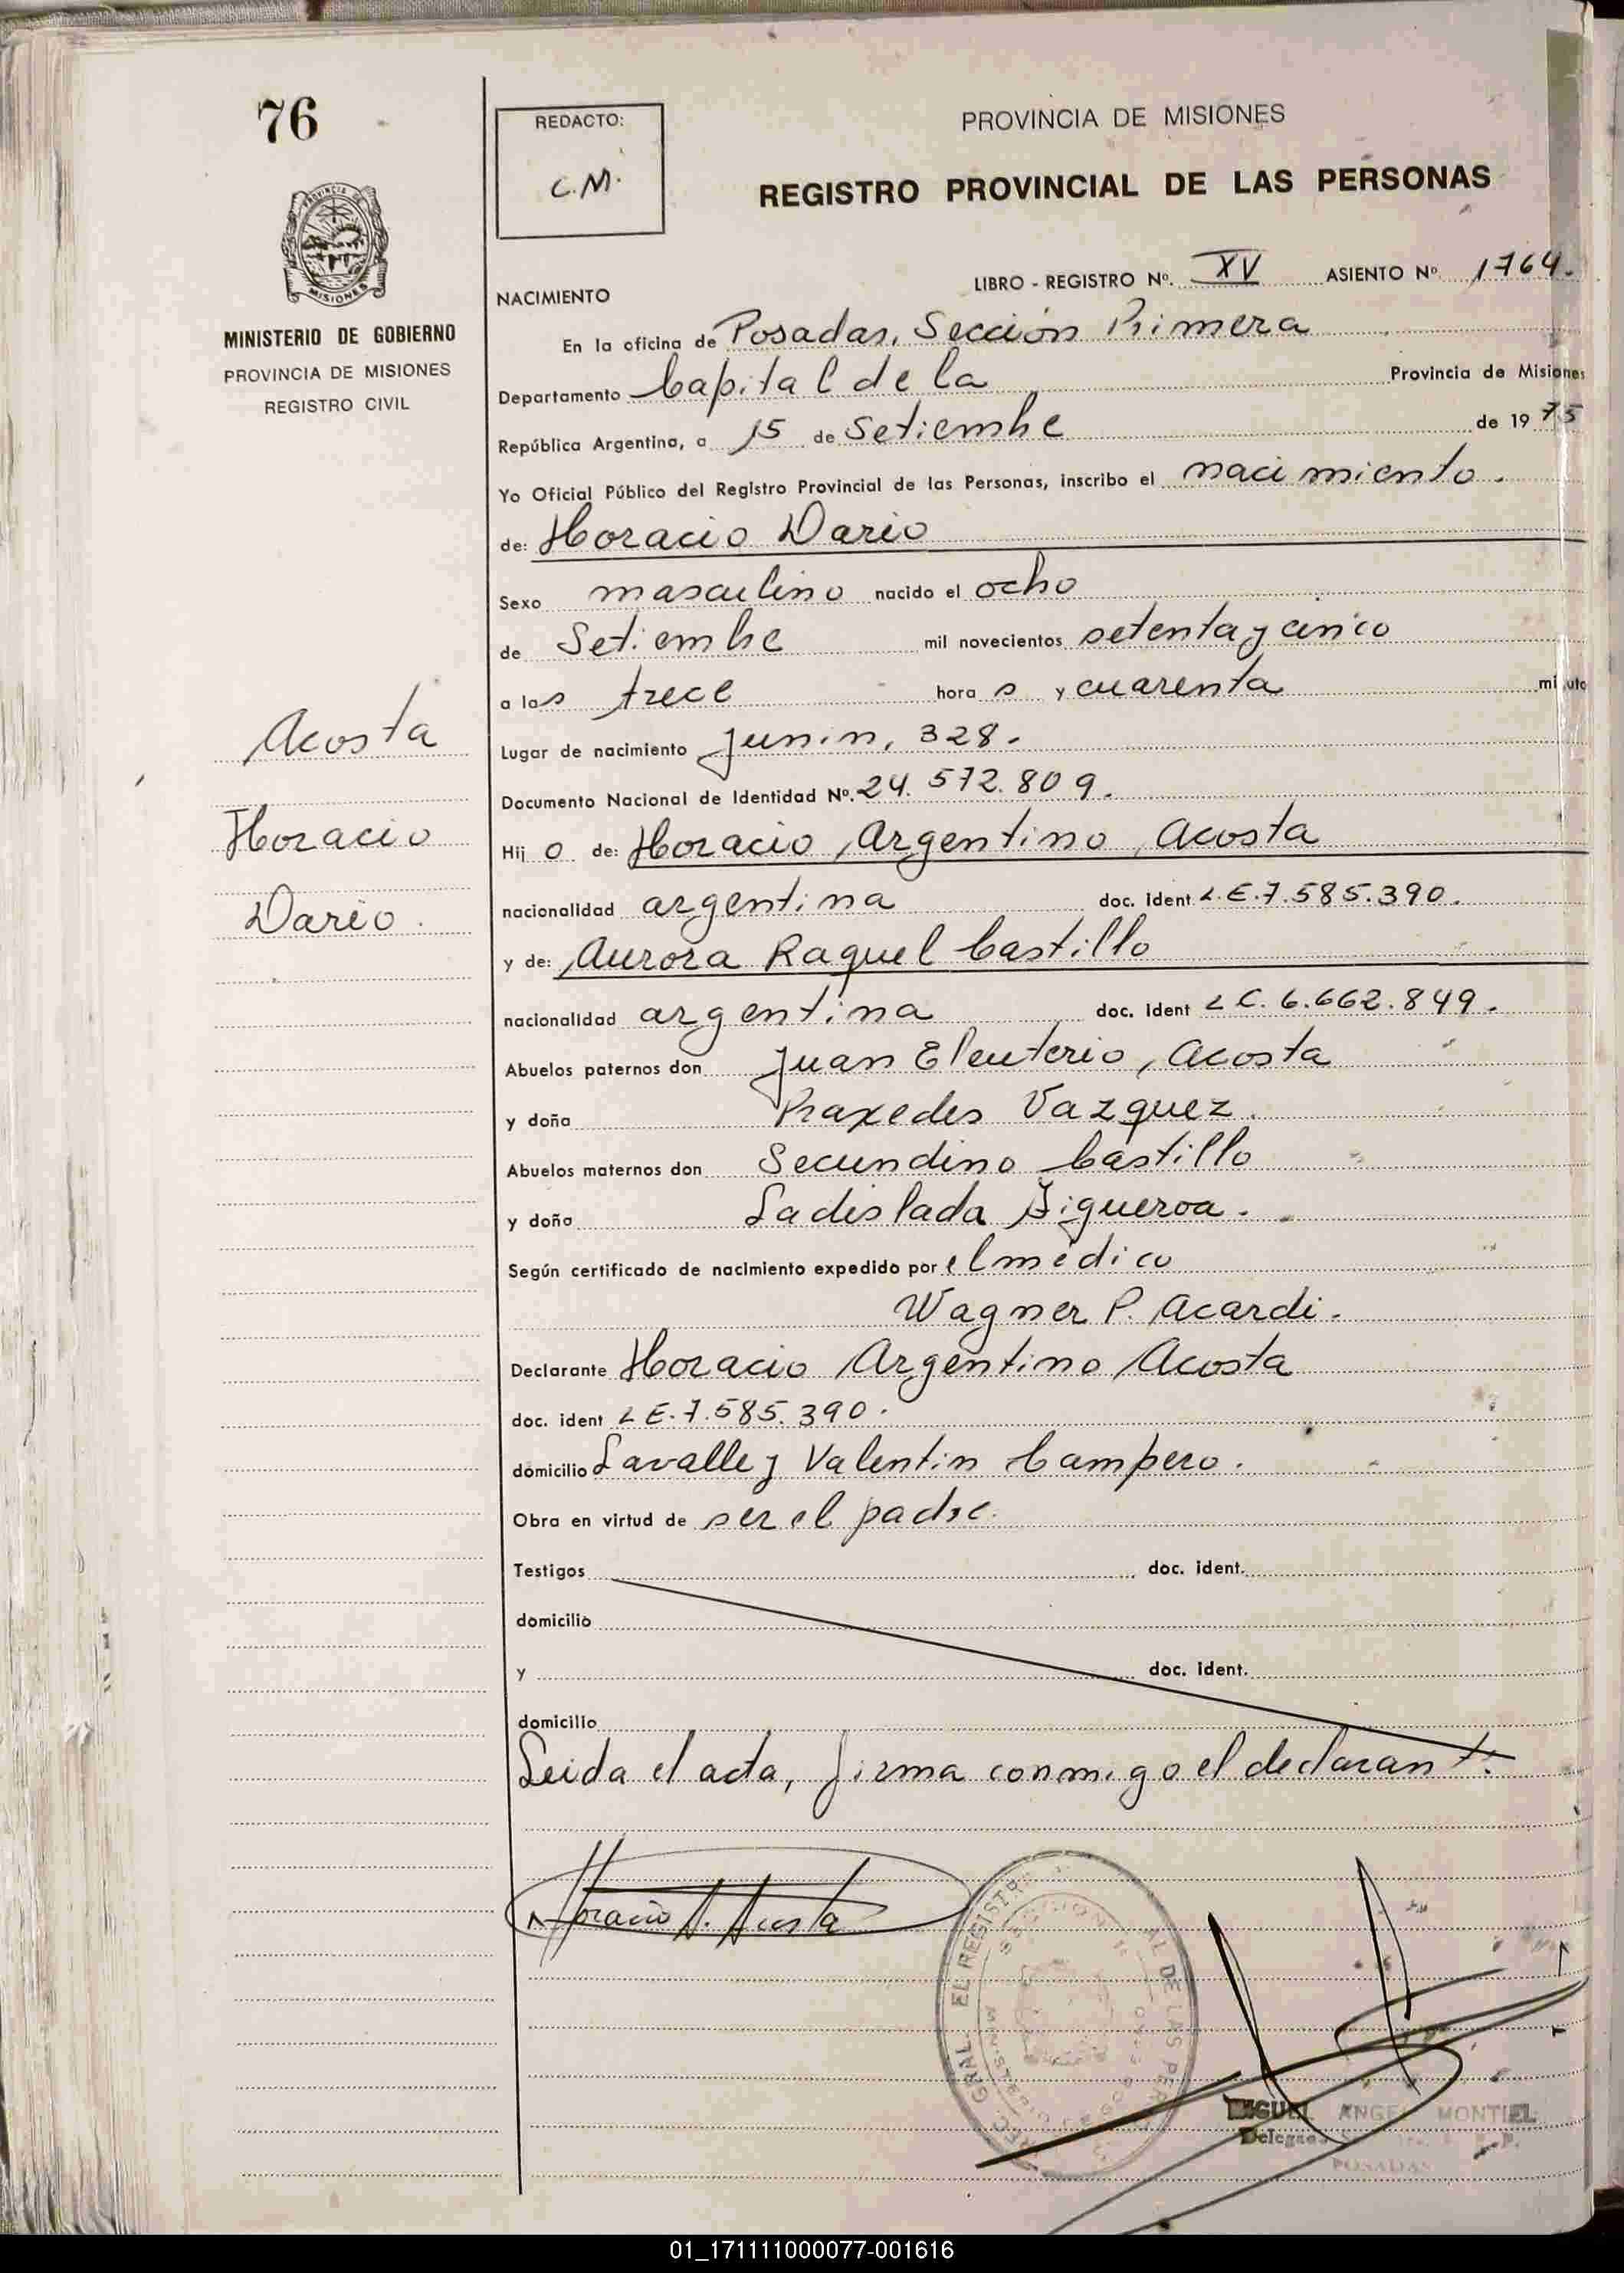 76
REDACTO:
C.M.
PROVINCIA DE MISIONES
REGISTRO PROVINCIAL DE LAS PERSONAS
PROVINCIA
MISIONES
MINISTERIO DE GOBIERNO
PROVINCIA DE MISIONES
REGISTRO CIVIL
Acosta
Horacio
Dario.
LIBRO - REGISTRO Nº. XV ASIENTO Nº 1764.
NACIMIENTO
En la oficina de Posadas, Sección Primera
Departamento Capital de la Provincia de Misiones
República Argentina, a 15 de Setiembre de 1975
Yo Oficial Público del Registro Provincial de las Personas, inscribo el nacimiento.
de: Horacio Dario
Sexo masculino nacido el ocho
de Setiembre mil novecientos setenta y cinco
a las trece hora s y cuarenta minuto
Lugar de nacimiento Junin, 328.
Documento Nacional de Identidad Nº. 24.572.809.
Hij o de: Horacio Argentino Acosta
nacionalidad argentina doc. ident L.E.7.585.390.
y de: Aurora Raquel Castillo
nacionalidad argentina doc. ident L C. 6.662.849.
Abuelos paternos don Juan Eleuterio Acosta
y doña Praxedes Vazquez.
Abuelos maternos don Secundino Castillo
y doña Ladislada Figueroa.
Según certificado de nacimiento expedido por el médico
Wagner P. Acardi.
Declarante Horacio Argentino Acosta
doc. ident L E.7.585.390.
domicilio Lavalle y Valentin Campero.
Obra en virtud de ser el padre.
Testigos doc. ident.
domicilio
y doc. ident.
domicilio
Leida el acta, firma conmigo el declarante.
Horacio A. Acosta
MIGUEL ANGEL MONTIEL
POSADAS
01_171111000077-001616